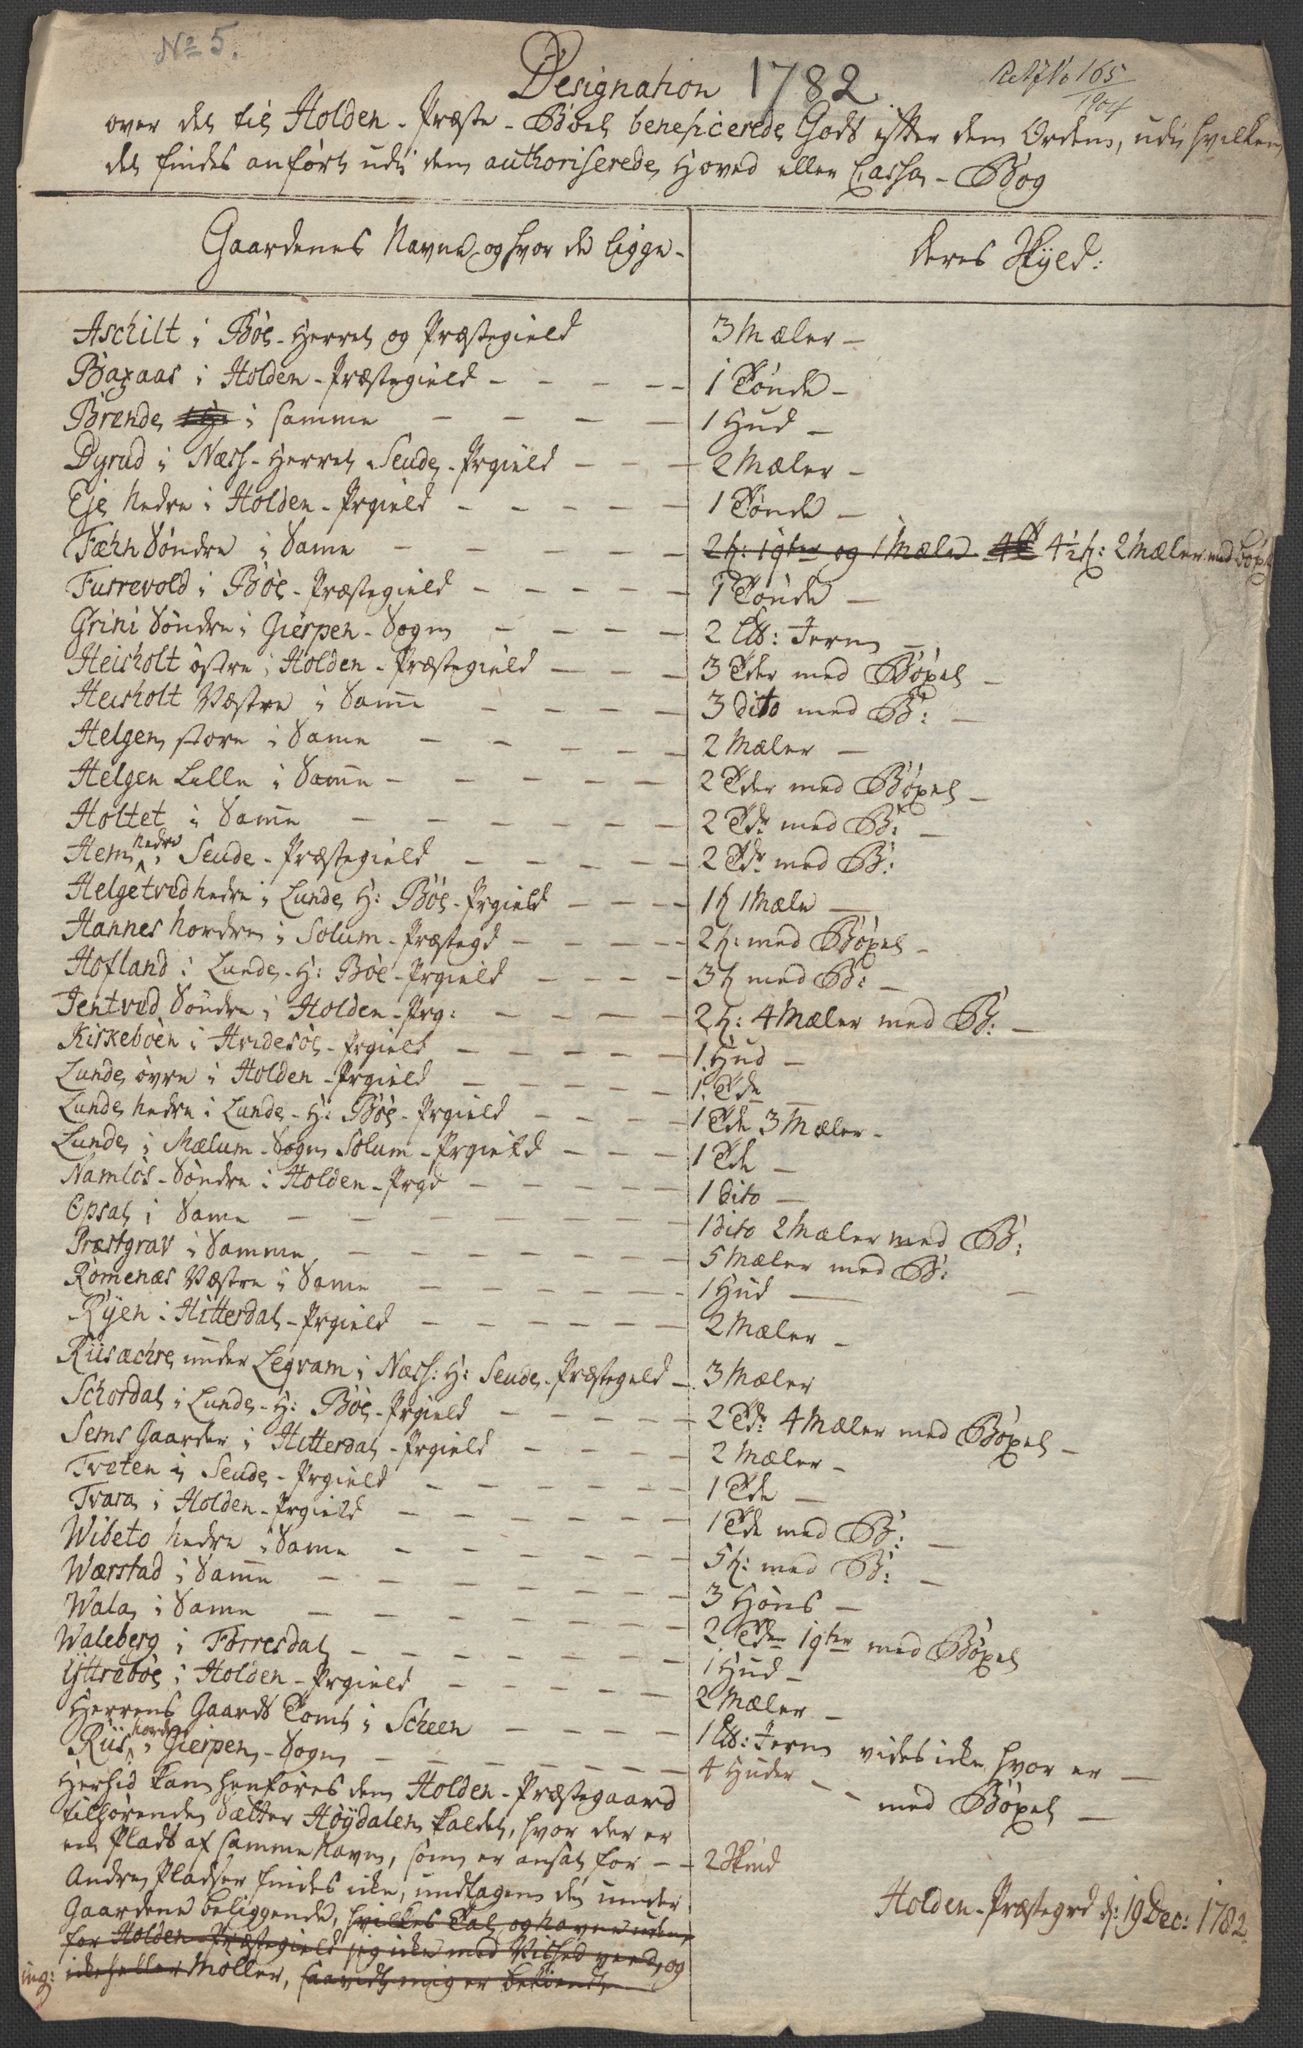 No 5.
Designation 1782
165
1904
over det til Holden-Præste-Bøel beneficerede Gods efter dem Orden, udi hvilken
det findes anført udi dem authoriserede Hoved eller Cassa-Bog
Gaardenes Navne og hvor de ligge-
deres Skyld:
Aschilt i Bøe-Herret og Præstegield
3 Mæler -
Baxaas i Holden-Præstegield - - - -
1 Tønde -
Brende i samme - - - -
1 Hud -
Dyrud i Næss-Herret Seude-Prgield - - -
2 Mæler -
Eje Nedre i Holden-Prgield - - - - -
1 Tønde -
Fæhn Søndre i Same - - - - -
2 h: 1 qter og 1 Mæle 4½ h: 2 Mæler med Bøxl
Furrevold i Bøe-Præstegield - - - - -
1 Tønde -
Grini Søndre i Gierpen-Sogn - - - -
2 Lb: Jern -
Heisholt østre i Holden-Præstegield - - -
3 Tder med Bøxel -
Heisholt Væstre i Samme - - - -
3 dito med B: -
Helgen store i Same - - - - -
2 Mæler -
Helgen Lille i Samme - - - - -
2 Tder med Bøxel -
Holtet i Samme - - - - - -
2 Tdr med B: -
Hem nedre i Seude-Præstegield - - - -
2 Tdr med B:
Helgetved nedre i Lunde H: Bøe-Prgield - - -
1 h 1 Mæle -
Hannes Nordre i Solum-Præstegd - - - -
2 h: med Bøxel -
Hofland i Lunde-H: Bøe-Prgield - - - -
3 h med B: -
Jentved Søndre i Holden-Prg: - - - -
2 h: 4 Mæler med B: -
Kirkebøen i Hvidesøe-Prgield - - - - -
1 Hud -
Lunde øvre i Holden-Prgield - - - - -
1 Tde -
Lunde Nedre i Lunde-H: Bøe-Prgield - - - -
1 Tde 3 Mæler -
Lunde i Mælum-Sogn Solum-Prgield - - -
1 Tde -
Namløs-Søndre i Holden-Prgd - - - - -
1 dito -
Opsal i Same - - - - - -
1 dito 2 Mæler med B:
Præstgrav i Samme - - - - -
5 Mæler med B:
Romenæs Væstre i Same - - - -
1 Hud -
Ryen i Hitterdal-Prgield - - - - - -
2 Mæler -
Riisachre under Legvam i Næss: H: Seude-Præstegield -
3 Mæler
Schordal i Lunde-H: Bøe-Prgield - - - - -
2 Tdr 4 Mæler med Bøxel -
Sems Gaarder i Hitterdal-Prgield - - - -
2 Mæler -
Tveten i Seude-Prgield - - - - - -
1 Tde -
Tvara i Holden-Prgield - - - - - -
1 Tde med B: -
Wibeto nedre i Same - - - - -
5 h: med B: -
Wærstad i Samme - - - - - -
3 Høns -
Wala i Same - - - - - -
2 Tder 1 qter med Bøxel
Waleberg i Forresdal - - - - - -
1 Hud -
Yttrebøe i Holden-Prgield - - - - -
2 Mæler -
Herrens Gaards Tomt i Scheen - - - -
1 Lb: Jern vides ikke hvor er -
Riis nordre i Gierpen-Sogn - - - - - -
4 Huder - - med Bøxel -
Herhid kan henføres dem Holden-Præstegaard
tilhørende Sætter Høydalen kaldet, hvor der er
en Plads af samme Navn, som er ansat for - -
2 Skind
Andre Pladser findes ikke, undtagen de under
Gaardene beliggende, hvilkes Tal og Navne uden
for Holden-Præstegield jeg ikke med Vished veed, og
ing: ikke heller Møller, saavidt mig er bekiendt
Holden-Præstegrd d: 19 Dec: 1782